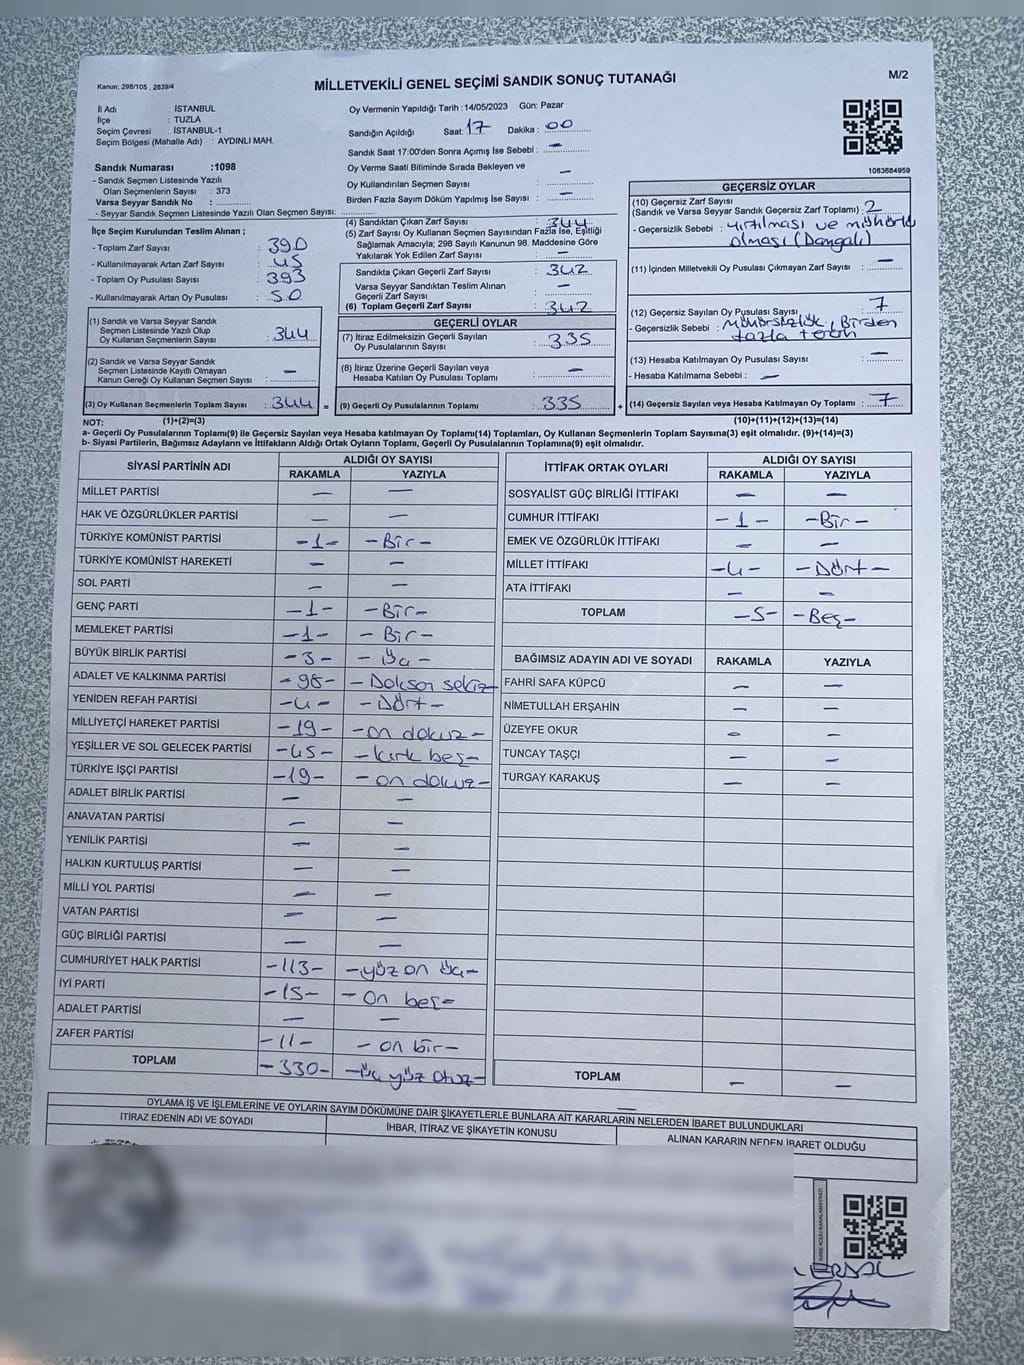 Kanun: 298/105 , 2839/4
MİLLETVEKİLİ GENEL SEÇİMİ SANDIK SONUÇ TUTANAĞI
M/2
İl Adı : İSTANBUL
İlçe : TUZLA
Seçim Çevresi : İSTANBUL-1
Seçim Bölgesi (Mahalle Adı) : AYDINLI MAH.
Oy Vermenin Yapıldığı Tarih :14/05/2023 Gün: Pazar
Sandığın Açıldığı Saat: 17 Dakika : 00
Sandık Saat 17:00'den Sonra Açımış İse Sebebi : —
Oy Verme Saati Bitiminde Sırada Bekleyen ve
Oy Kullandırılan Seçmen Sayısı : —
Birden Fazla Sayım Döküm Yapılmış İse Sayısı : —
1083684959
Sandık Numarası :1098
- Sandık Seçmen Listesinde Yazılı
Olan Seçmenlerin Sayısı : 373
Varsa Seyyar Sandık No :
- Seyyar Sandık Seçmen Listesinde Yazılı Olan Seçmen Sayısı:
İlçe Seçim Kurulundan Teslim Alınan ;
- Toplam Zarf Sayısı : 390
- Kullanılmayarak Artan Zarf Sayısı : 45
- Toplam Oy Pusulası Sayısı : 393
- Kullanılmayarak Artan Oy Pusulası : 50
(1) Sandık ve Varsa Seyyar Sandık
Seçmen Listesinde Yazılı Olup
Oy Kullanan Seçmenlerin Sayısı : 344
(2) Sandık ve Varsa Seyyar Sandık
Seçmen Listesinde Kayıtlı Olmayan
Kanun Gereği Oy Kullanan Seçmen Sayısı : —
(3) Oy Kullanan Seçmenlerin Toplam Sayısı : 344 =
(4) Sandıktan Çıkan Zarf Sayısı : 344
(5) Zarf Sayısı Oy Kullanan Seçmen Sayısından Fazla İse, Eşitliği
Sağlamak Amacıyla; 298 Sayılı Kanunun 98. Maddesine Göre
Yakılarak Yok Edilen Zarf Sayısı : —
Sandıkta Çıkan Geçerli Zarf Sayısı : 342
Varsa Seyyar Sandıktan Teslim Alınan
Geçerli Zarf Sayısı : —
(6) Toplam Geçerli Zarf Sayısı : 342
GEÇERLİ OYLAR
(7) İtiraz Edilmeksizin Geçerli Sayılan
Oy Pusulalarının Sayısı : 335
(8) İtiraz Üzerine Geçerli Sayılan veya
Hesaba Katılan Oy Pusulası Toplamı : —
(9) Geçerli Oy Pusulalarının Toplamı : 335 +
GEÇERSİZ OYLAR
(10) Geçersiz Zarf Sayısı
(Sandık ve Varsa Seyyar Sandık Geçersiz Zarf Toplamı) : 2
- Geçersizlik Sebebi : yırtılması ve mühürlü
olması (Damgalı)
(11) İçinden Milletvekili Oy Pusulası Çıkmayan Zarf Sayısı : —
(12) Geçersiz Sayılan Oy Pusulası Sayısı : 7
- Geçersizlik Sebebi : Mühürsüzlük, Birden
fazla tercih
(13) Hesaba Katılmayan Oy Pusulası Sayısı : —
- Hesaba Katılmama Sebebi : —
(14) Geçersiz Sayılan veya Hesaba Katılmayan Oy Toplamı : 7
NOT: (1)+(2)=(3) (10)+(11)+(12)+(13)=(14)
a- Geçerli Oy Pusulalarının Toplamı(9) ile Geçersiz Sayılan veya Hesaba katılmayan Oy Toplamı(14) Toplamları, Oy Kullanan Seçmenlerin Toplam Sayısına(3) eşit olmalıdır. (9)+(14)=(3)
b- Siyasi Partilerin, Bağımsız Adayların ve İttifakların Aldığı Ortak Oyların Toplamı, Geçerli Oy Pusulalarının Toplamına(9) eşit olmalıdır.
SİYASİ PARTİNİN ADI ALDIĞI OY SAYISI
RAKAMLA YAZIYLA
MİLLET PARTİSİ — —
HAK VE ÖZGÜRLÜKLER PARTİSİ — —
TÜRKİYE KOMÜNİST PARTİSİ -1- -Bir-
TÜRKİYE KOMÜNİST HAREKETİ — —
SOL PARTİ — —
GENÇ PARTİ -1- -Bir-
MEMLEKET PARTİSİ -1- -Bir-
BÜYÜK BİRLİK PARTİSİ -3- -Üç-
ADALET VE KALKINMA PARTİSİ -98- -Doksan sekiz-
YENİDEN REFAH PARTİSİ -4- -Dört-
MİLLİYETÇİ HAREKET PARTİSİ -19- -on dokuz-
YEŞİLLER VE SOL GELECEK PARTİSİ -45- -kırk beş-
TÜRKİYE İŞÇİ PARTİSİ -19- -on dokuz-
ADALET BİRLİK PARTİSİ — —
ANAVATAN PARTİSİ — —
YENİLİK PARTİSİ — —
HALKIN KURTULUŞ PARTİSİ — —
MİLLİ YOL PARTİSİ — —
VATAN PARTİSİ — —
GÜÇ BİRLİĞİ PARTİSİ — —
CUMHURİYET HALK PARTİSİ -113- -yüz on üç-
İYİ PARTİ -15- -on beş-
ADALET PARTİSİ — —
ZAFER PARTİSİ -11- -on bir-
TOPLAM -330- -üç yüz otuz-
İTTİFAK ORTAK OYLARI ALDIĞI OY SAYISI
RAKAMLA YAZIYLA
SOSYALİST GÜÇ BİRLİĞİ İTTİFAKI — —
CUMHUR İTTİFAKI -1- -Bir-
EMEK VE ÖZGÜRLÜK İTTİFAKI — —
MİLLET İTTİFAKI -4- -Dört-
ATA İTTİFAKI — —
TOPLAM -5- -Beş-
BAĞIMSIZ ADAYIN ADI VE SOYADI RAKAMLA YAZIYLA
FAHRİ SAFA KÜPCÜ — —
NİMETULLAH ERŞAHİN — —
ÜZEYFE OKUR — —
TUNCAY TAŞÇI — —
TURGAY KARAKUŞ — —
TOPLAM — —
OYLAMA İŞ VE İŞLEMLERİNE VE OYLARIN SAYIM DÖKÜMÜNE DAİR ŞİKAYETLERLE BUNLARA AİT KARARLARIN NELERDEN İBARET BULUNDUKLARI
İTİRAZ EDENİN ADI VE SOYADI İHBAR, İTİRAZ VE ŞİKAYETİN KONUSU ALINAN KARARIN NEDEN İBARET OLDUĞU